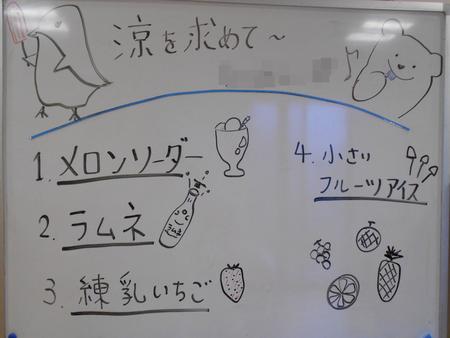 涼を求めて～
1. メロンソーダー
2. ラムネ
3. 練乳いちご
4. 小さい
フルーツアイス